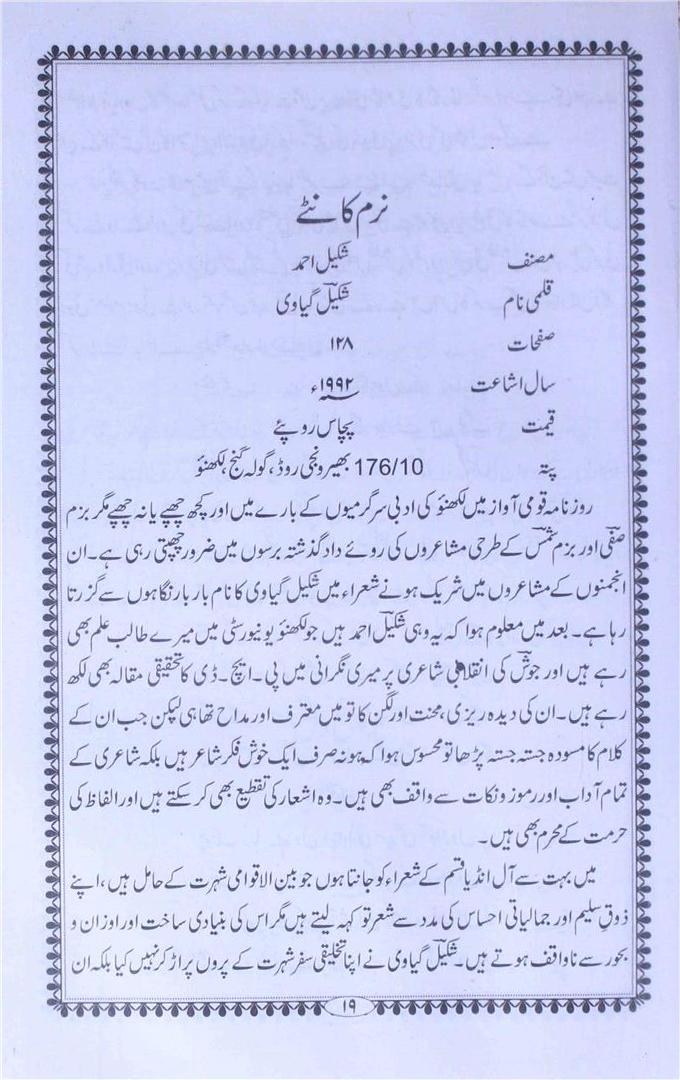 نرم کانٹے
مصنف شکیل احمد
قلمی نام شکیلؔ گیاوی
صفحات ۱۲۸
سال اشاعت ۱۹۹۲ء
قیمت پچاس روپئے
پتہ 176/10 بھیرونجی روڈ، گولہ گنج، لکھنؤ
روزنامہ قومی آواز میں لکھنؤ کی ادبی سرگرمیوں کے بارے میں اور کچھ چھپے یا نہ چھپے مگر بزم
صفیؔ اور بزم شمسؔ کے طرحی مشاعروں کی روئے داد گذشتہ برسوں میں ضرور چھپتی رہی ہے۔ ان
انجمنوں کے مشاعروں میں شریک ہونے شعراء میں شکیلؔ گیاوی کا نام بار بار نگاہوں سے گزرتا
رہا ہے۔ بعد میں معلوم ہوا کہ یہ وہی شکیل احمد ہیں جو لکھنؤ یونیورسٹی میں میرے طالب علم بھی
رہے ہیں اور جوشؔ کی انقلابی شاعری پر میری نگرانی میں پی۔ ایچ۔ ڈی کا تحقیقی مقالہ بھی لکھ
رہے ہیں۔ ان کی دیدہ ریزی، محنت اور لگن کا تو میں معترف اور مداح تھا ہی لیکن جب ان کے
کلام کا مسودہ جستہ جستہ پڑھا تو محسوس ہوا کہ یہ نہ صرف ایک خوش فکر شاعر ہیں بلکہ شاعری کے
تمام آداب اور رموز و نکات سے واقف بھی ہیں۔ وہ اشعار کی تقطیع بھی کر سکتے ہیں اور الفاظ کی
حرمت کے محرم بھی ہیں۔
میں بہت سے آل انڈیا قسم کے شعراء کو جانتا ہوں جو بین الاقوامی شہرت کے حامل ہیں، اپنے
ذوقِ سلیم اور جمالیاتی احساس کی مدد سے شعر تو کہہ لیتے ہیں مگر اس کی بنیادی ساخت اور اوزان و
بحور سے ناواقف ہوتے ہیں۔ شکیلؔ گیاوی نے اپنا تخلیقی سفر شہرت کے پروں پر اڑ کر نہیں کیا بلکہ ان
۱۹